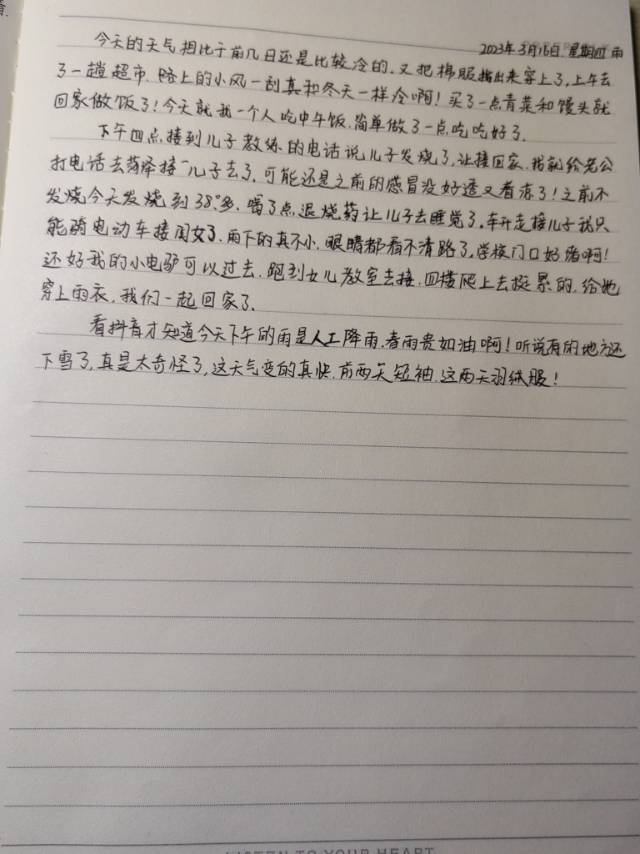 2023年3月16日 星期四 雨
今天的天气相比于前几日还是比较冷的,又把棉服掏出来穿上了,上午去
了一趟超市,路上的小风一刮真和冬天一样冷啊!买了一点青菜和馒头就
回家做饭了!今天就我一个人吃中午饭,简单做了一点吃吃好了.
下午四点接到儿子教练的电话说儿子发烧了,让接回家,我就给老公
打电话去菏泽接儿子去了,可能还是之前的感冒没好透又着凉了!之前不
发烧今天发烧到38°多,喝了点退烧药让儿子去睡觉了,车开走接儿子我只
能骑电动车接闺女了,雨下的真不小,眼睛都看不清路了,学校门口好堵啊!
还好我的小电驴可以过去,跑到女儿教室去接,四楼爬上去挺累的,给她
穿上雨衣,我们一起回家了.
看抖音才知道今天下午的雨是人工降雨,春雨贵如油啊!听说有的地方还
下雪了,真是太奇怪了,这天气变的真快,前两天短袖,这两天羽绒服!
LISTEN TO YOUR HEART